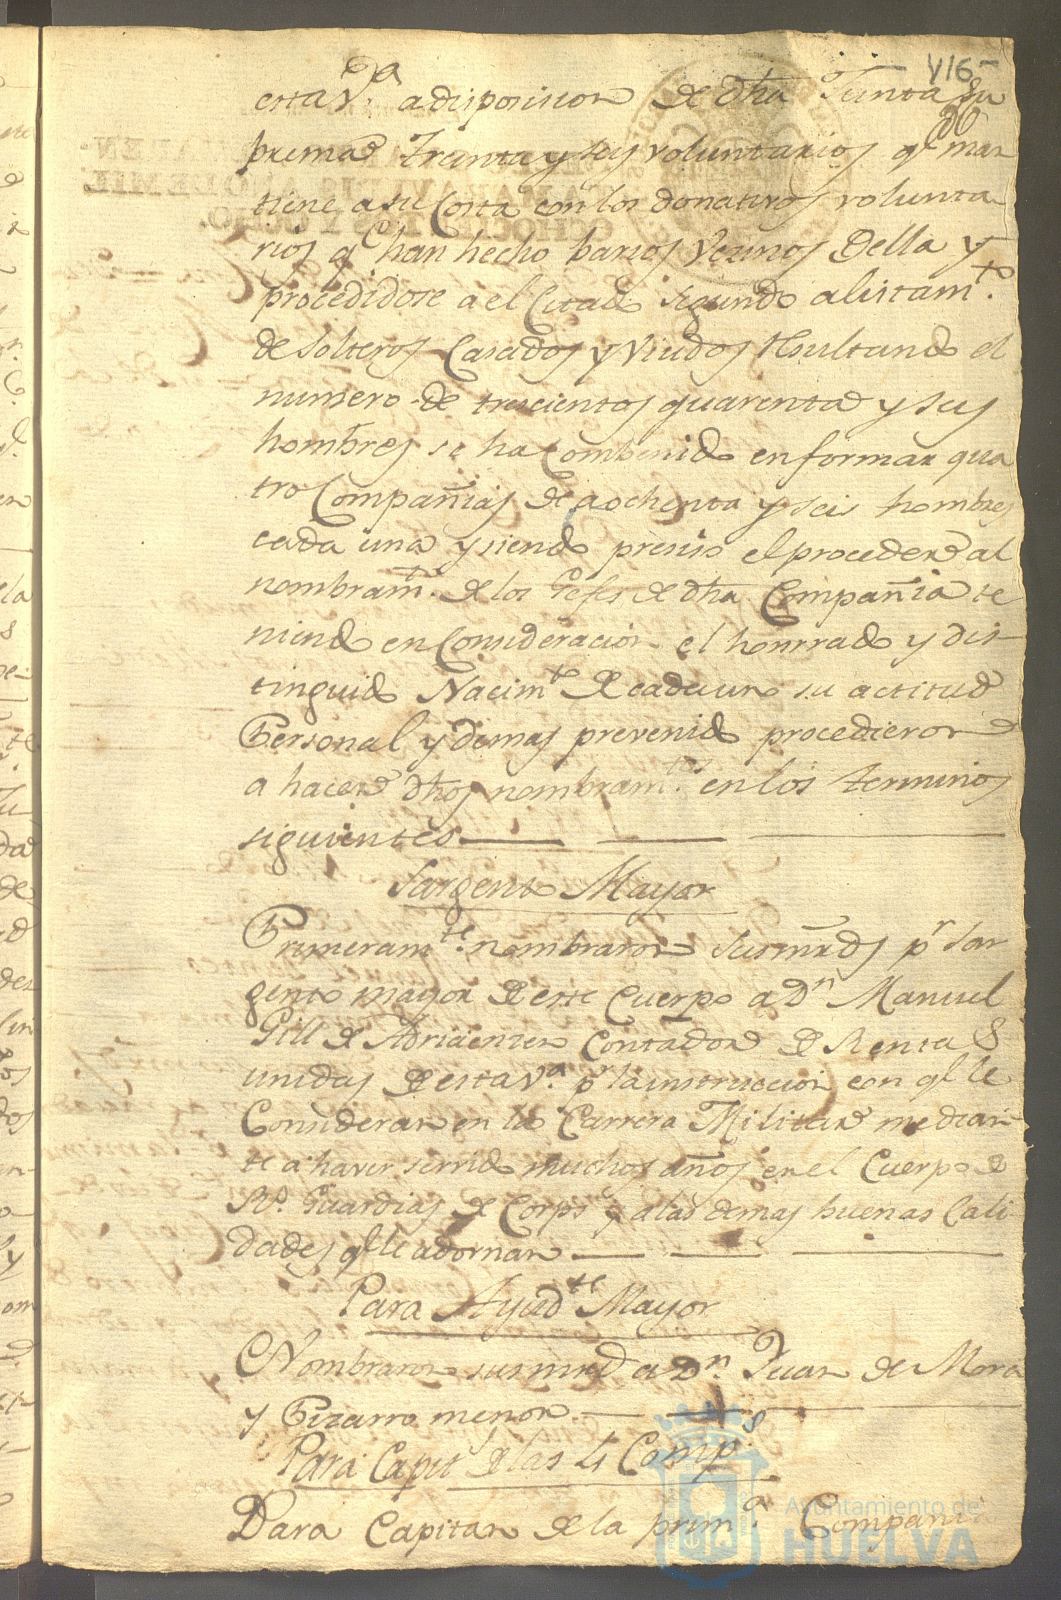 V16
36
esta V.ª a disposicion de dha Junta Su
prema Treinta y seis voluntarios q.e man
tiene a su Costa con los donativos volunta
rios q.e han hecho barios Vezinos della y
procedidose a el Citado segundo alistam.to
de solteros Casados y Viudos Resultando el
numero de trescientos quarenta y seis
hombres se ha Combenido en formar qua
tro Compañias de a ochenta y seis hombres
cada una y siendo presiso el proceder al
nombram.to de los Gefes de dha Compañia te
niendo en Consideracion el honrrado y dis
tinguido Nacim.to de cada uno su actitud
Personal y demas prevenido procedieron
a hacer dhos nombram.tos en los terminos
siguientes
Sargento Mayor
Primeram.te nombraron susmrds p.r Sar
gento mayor de este Cuerpo a D.n Manuel
Gill de Contador de Rentas
unidas de esta V.ª p.r la instruccion con q.e le
Consideran en la Carrera Militar median
te a haver servido muchos años en el Cuerpo de
R.s Guardias de Corps y a las demas buenas Cali
dades q.e le adornan
Para Ayud.te Mayor
Nombraron susmrds a D.n Juan de Mora
y Pizarro menor
Para Capit.s de las 4 Comp.s
Para Capitan de la prim.ª Compañia
Ayuntamiento de
HUELVA